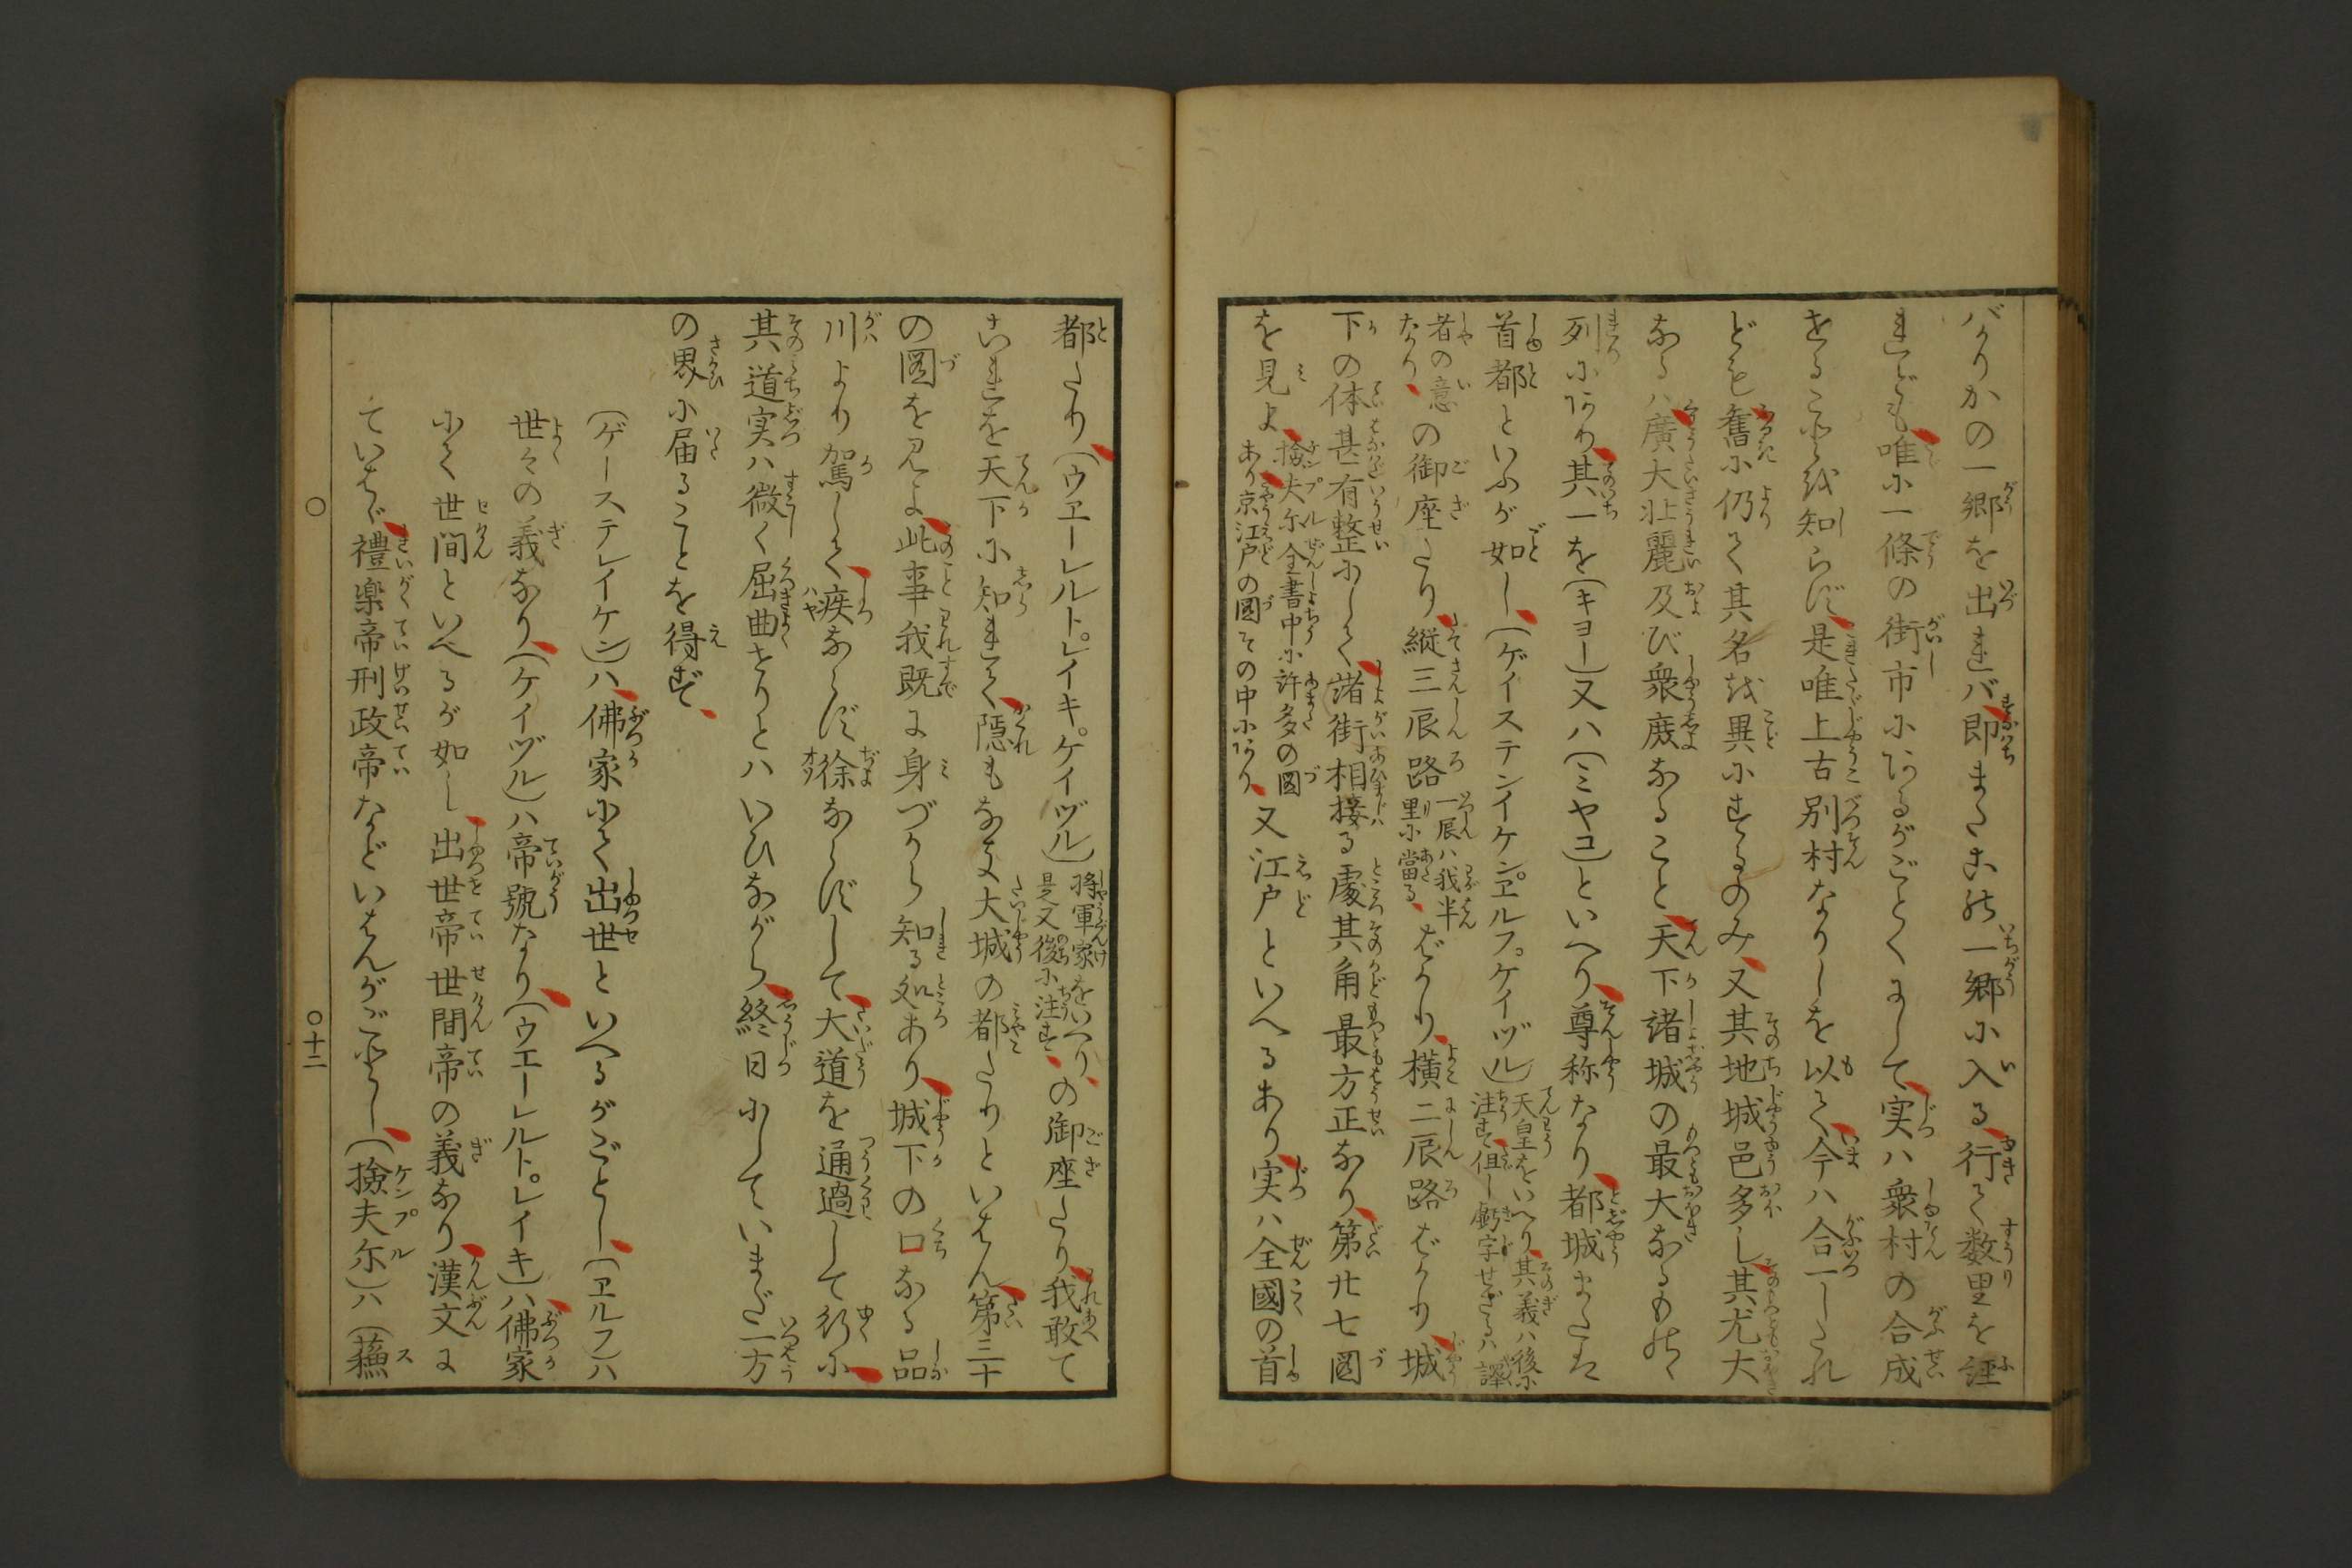 バかりかの一郷を出れバ即またこれ一郷に入る行て数里を歴
れども唯に一條の街市にあるがごとくにして実ハ衆村の合成
せることを知らず是唯上古別村なりしを以て今ハ合一したれ
ども舊に仍て其名を異にするのみ又其地城邑多し其尤大
なるハ廣大壮麗及び衆庶なること天下諸城の最大なるもの
列にあり其一を(キヨー)又ハ(ミヤコ)といへり尊称なり都城または
首都といふが如し(ゲイステンイケンヱルフケイヅル)天皇をいへり其義ハ後に
注す但し齶字せざるハ譯
者の意
なり
の御座たり縦三辰路一辰ハ我半
里に當る
ばかり横二辰路ばかり城
下の体甚有整にして諸街相接る處其角最方正なり第廿七圖
を見よ撿夫尓全書中に許多の圖
あり京江戸の圖その中にあり
又江戸といへるあり実ハ全國の首
都たり(ウヱールレルトレイキケイヅル)将軍家をいへり
是又後に注す
の御座たり我敢て
これを天下に知れて隠もなき大城の都たりといはん第三十
の圖を見よ此事我既に身づから知る処あり城下の口なる品
川より駕して疾ならず徐ならずして大道を通過して行に
其道実ハ微く屈曲せりとハいひながら終日にしていまだ一方
の界に届ることを得ず
(ゲーステレイケン)ハ佛家にて出世といへるがごとし(ヱルフ)ハ
世々の義なり(ケイヅル)ハ帝號なり(ウエールレルトレイキ)ハ佛家
にて世間といへるが如し出世帝世間帝の義なり漢文に
ていはゞ禮楽帝刑政帝などいはんがごとし(撿夫尓)ハ(蘓
〇 〇十二